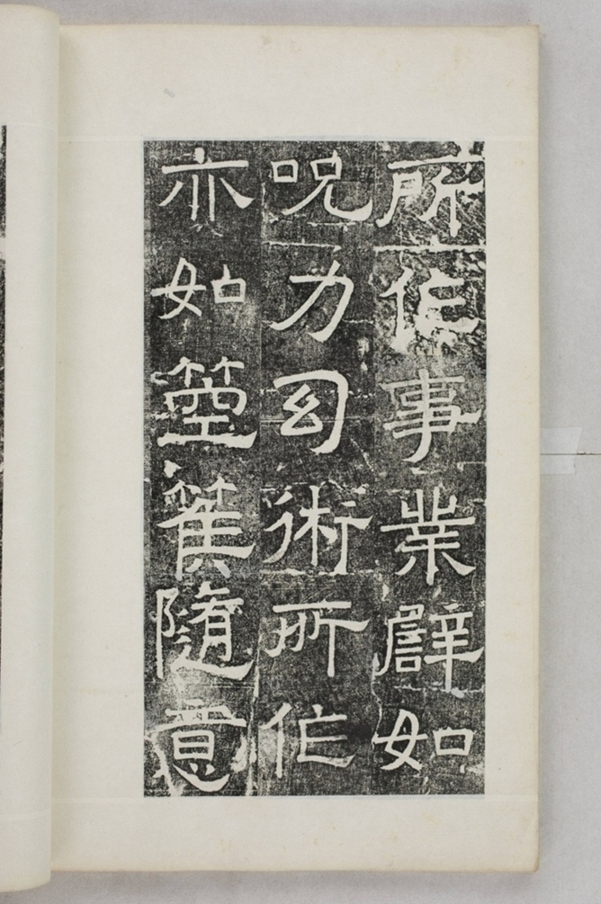 所作事業辟如
呪力幻術所作
亦如箜篌隨意